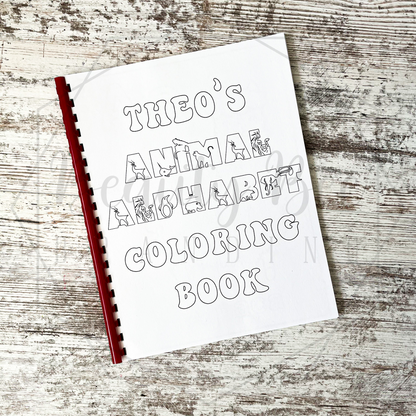 THEO'S
ANIMAL
ALPHABET
COLORING
BOOK